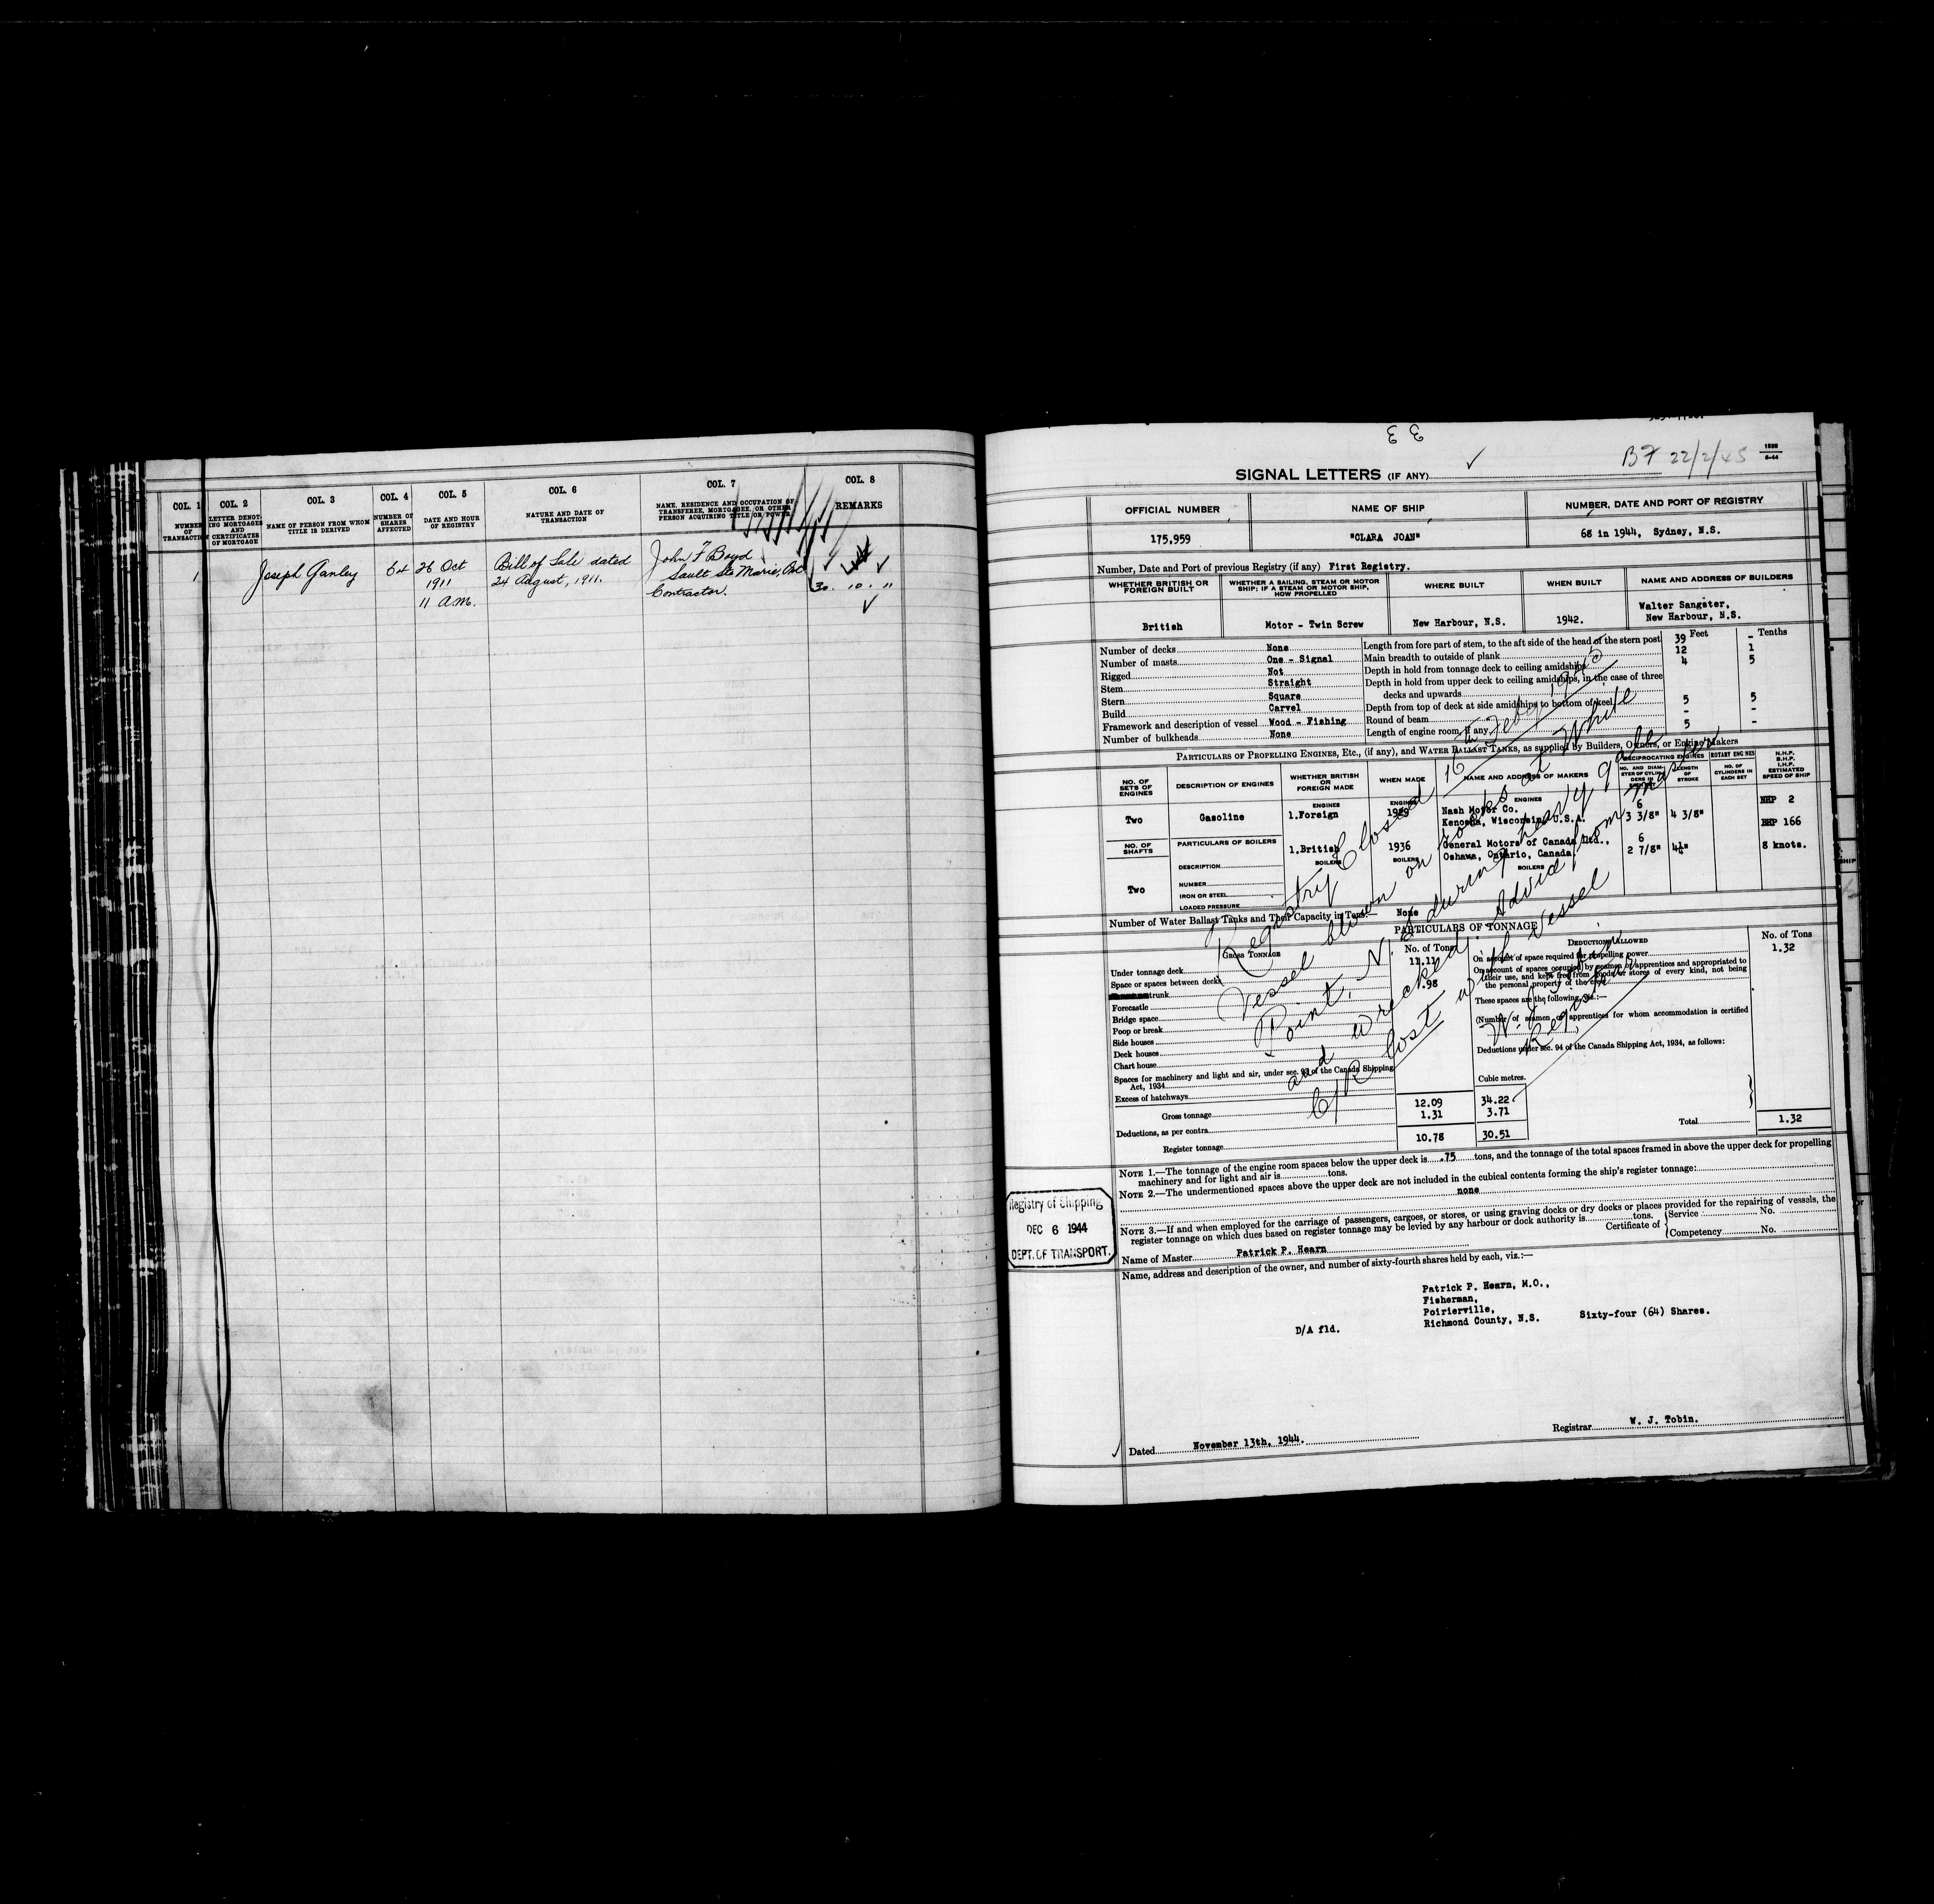 COL. 1
NUMBER OF TRANSACTION
COL. 2
LETTER DENOTING MORTGAGES AND CERTIFICATES OF MORTGAGE
COL. 3
NAME OF PERSON FROM WHOM TITLE IS DERIVED
COL. 4
NUMBER OF SHARES AFFECTED
COL. 5
DATE AND HOUR OF REGISTRY
COL. 6
NATURE AND DATE OF TRANSACTION
COL. 7
NAME, RESIDENCE AND OCCUPATION OF TRANSFEREE, MORTGAGEE, OR OTHER PERSON ACQUIRING TITLE OR POWER
COL. 8
REMARKS
1 Joseph Ganley 64 26 Oct Bill of Sale dated John F Boyd
1911 24 August, 1911. Sault Ste Marie, Ont
11 A.M. Contractor. 30. 10. 11
SIGNAL LETTERS (IF ANY)
BF 22/2/45
OFFICIAL NUMBER NAME OF SHIP NUMBER, DATE AND PORT OF REGISTRY
175,959 "CLARA JOAN" 68 in 1944, Sydney, N.S.
Number, Date and Port of previous Registry (if any) First Registry.
WHETHER BRITISH OR FOREIGN BUILT
WHETHER A SAILING, STEAM OR MOTOR SHIP; IF A STEAM OR MOTOR SHIP, HOW PROPELLED
WHERE BUILT
WHEN BUILT
NAME AND ADDRESS OF BUILDERS
British Motor - Twin Screw New Harbour, N.S. 1942. Walter Sangster,
New Harbour, N.S.
Number of decks None
Number of masts One - Signal
Rigged Not
Stem Straight
Stern Square
Build Carvel
Framework and description of vessel Wood - Fishing
Number of bulkheads None
Feet Tenths
Length from fore part of stem, to the aft side of the head of the stern post 39 -
Main breadth to outside of plank 12 1
Depth in hold from tonnage deck to ceiling amidships 4 5
Depth in hold from upper deck to ceiling amidships, in the case of three
decks and upwards
Depth from top of deck at side amidships to bottom of keel 5 5
Round of beam - -
Length of engine room, if any 5 -
PARTICULARS OF PROPELLING ENGINES, ETC., (if any), and WATER BALLAST TANKS, as supplied by Builders, Owners, or Engine Makers
NO. OF SETS OF ENGINES
DESCRIPTION OF ENGINES
WHETHER BRITISH OR FOREIGN MADE
WHEN MADE
NAME AND ADDRESS OF MAKERS
RECIPROCATING ENGINES
NO. AND DIAMETER OF CYLINDERS IN EACH SET
LENGTH OF STROKE
ROTARY ENGINES
NO. OF CYLINDERS IN EACH SET
N.H.P. B.H.P. I.H.P. ESTIMATED SPEED OF SHIP
Two Gasoline
ENGINES
1.Foreign
ENGINES
1929
ENGINES
Nash Motor Co.
Kenosha, Wisconsin, U.S.A.
6
3 3/8" 4 3/8"
NHP 2
BHP 166
NO. OF SHAFTS
PARTICULARS OF BOILERS
1.British 1936 General Motors of Canada Ltd.,
Oshawa, Ontario, Canada.
6
2 7/8" 4¼" 8 knots.
BOILERS BOILERS BOILERS
DESCRIPTION
NUMBER
IRON OR STEEL
LOADED PRESSURE
Two
Number of Water Ballast Tanks and Their Capacity in Tons:— None
PARTICULARS OF TONNAGE
GROSS TONNAGE No. of Tons
Under tonnage deck 11.11
Space or spaces between decks
trunk .98
Forecastle
Bridge space
Poop or break
Side houses
Deck houses
Chart house
Spaces for machinery and light and air, under sec. 93 of the Canada Shipping
Act, 1934
Excess of hatchways
Cubic metres.
Gross tonnage 12.09 34.22
Deductions, as per contra 1.31 3.71
Register tonnage 10.78 30.51
DEDUCTIONS ALLOWED No. of Tons
On account of space required for propelling power 1.32
On account of spaces occupied by seamen or apprentices and appropriated to
their use, and kept free from goods or stores of every kind, not being
the personal property of the crew
These spaces are the following, viz.:—
(Number of seamen or apprentices for whom accommodation is certified
Deductions under sec. 94 of the Canada Shipping Act, 1934, as follows:
Total 1.32
Registry Closed 16th Feby 1945
Vessel blown on rocks at White
Point, N.S during heavy gale
and wrecked. Advice from Master
C/R lost with vessel
W. J. Tobin
Registrar
NOTE 1.—The tonnage of the engine room spaces below the upper deck is .75 tons, and the tonnage of the total spaces framed in above the upper deck for propelling
machinery and for light and air is tons.
NOTE 2.—The undermentioned spaces above the upper deck are not included in the cubical contents forming the ship's register tonnage:
none
NOTE 3.—If and when employed for the carriage of passengers, cargoes, or stores, or using graving docks or dry docks or places provided for the repairing of vessels, the
register tonnage on which dues based on register tonnage may be levied by any harbour or dock authority is tons.
Certificate of
Service No.
Competency No.
Registry of Shipping
DEC 6 1944
DEPT. OF TRANSPORT.
Name of Master Patrick P. Hearn
Name, address and description of the owner, and number of sixty-fourth shares held by each, viz.:—
Patrick P. Hearn, M.O.,
Fisherman,
Poirierville,
Richmond County, N.S. Sixty-four (64) Shares.
D/A fld.
Dated November 13th, 1944.
Registrar W. J. Tobin.